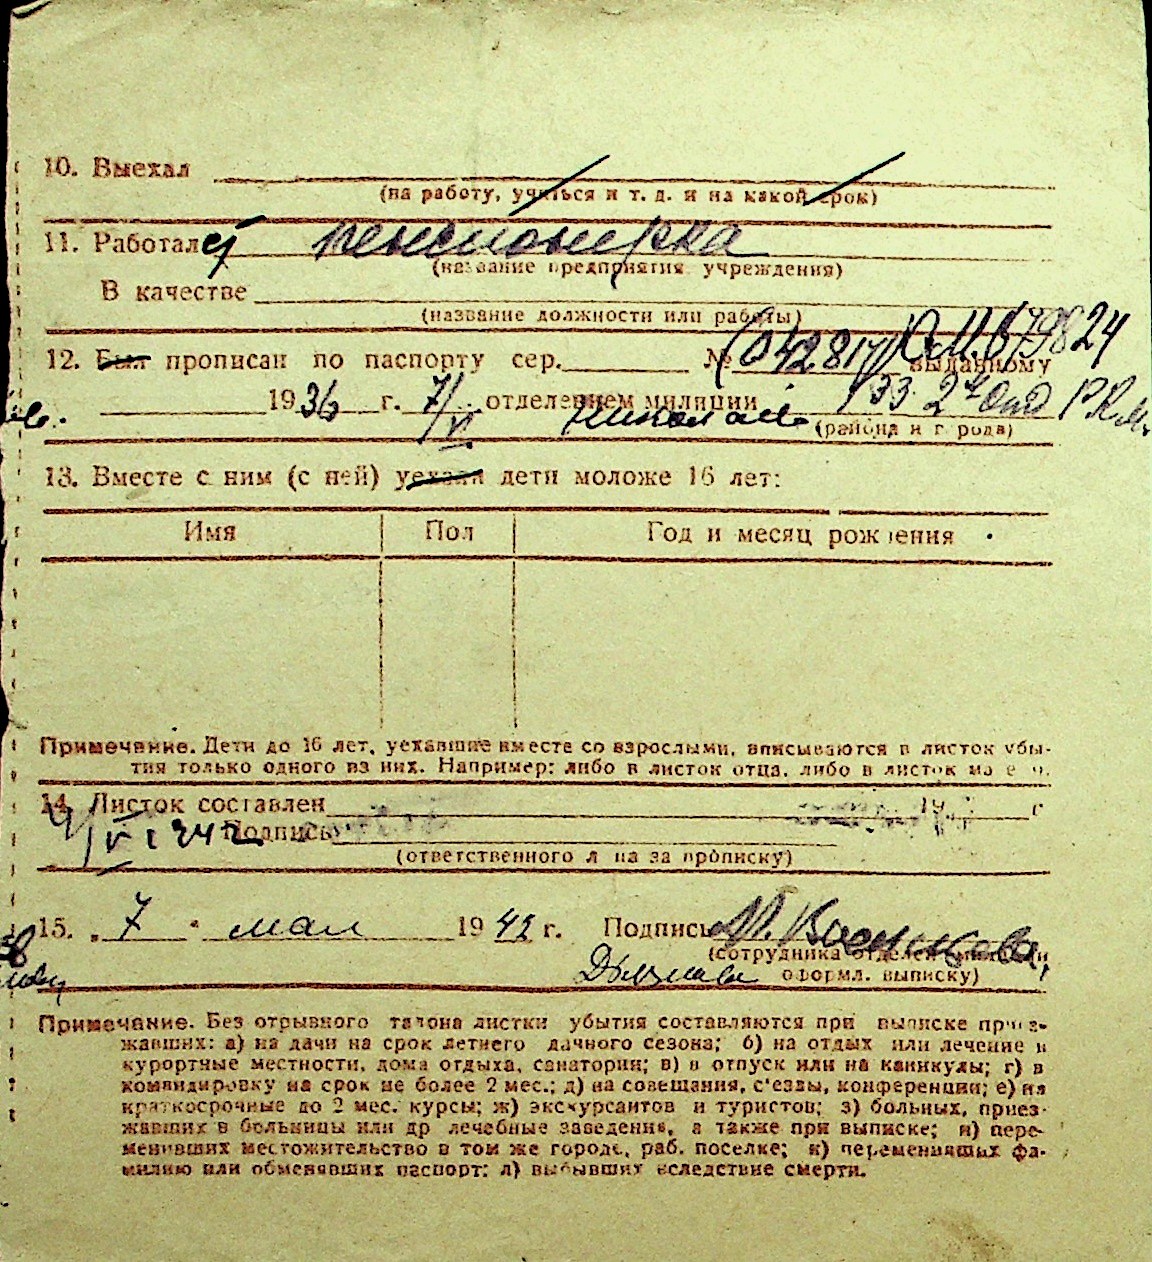 10. Выехал
(на работу, учиться и т. д. и на какой срок)
11. Работал пенсионерка
(название предприятия учреждения)
В качестве
(название должности или работы)
12. Был прописан по паспорту сер. № (042817) выданному
1936 г. 7/VI отделением милиции 2 Отд Р.К.М.
(района и города)
13. Вместе с ним (с ней) уехали дети моложе 16 лет:
Имя Пол Год и месяц рождения
Примечание. Дети до 16 лет, уехавшие вместе со взрослыми, вписываются в листок убы-
тия только одного из них. Например: либо в листок отца, либо в листок
14. Листок составлен 19 г
Подпись
(ответственного за прописку)
15. „ 7 " мая 1942 г. Подпись
(сотрудника отделен. милиции
оформл. выписку)
Примечание. Без отрывного талона листки убытия составляются при выписке приез-
жавших: а) на дачи на срок летнего дачного сезона; б) на отдых или лечение в
курортные местности, дома отдыха, санатории; в) в отпуск или на каникулы; г) в
командировку на срок не более 2 мес.; д) на совещания, с'езды, конференции; е) на
краткосрочные до 2 мес. курсы; ж) экскурсантов и туристов; з) больных, приез-
жавших в больницы или др лечебные заведения, а также при выписке; и) пере-
менивших местожительство в том же городе, раб. поселке; к) переменивших фа-
милию или обменявших паспорт; л) выбывших вследствие смерти.